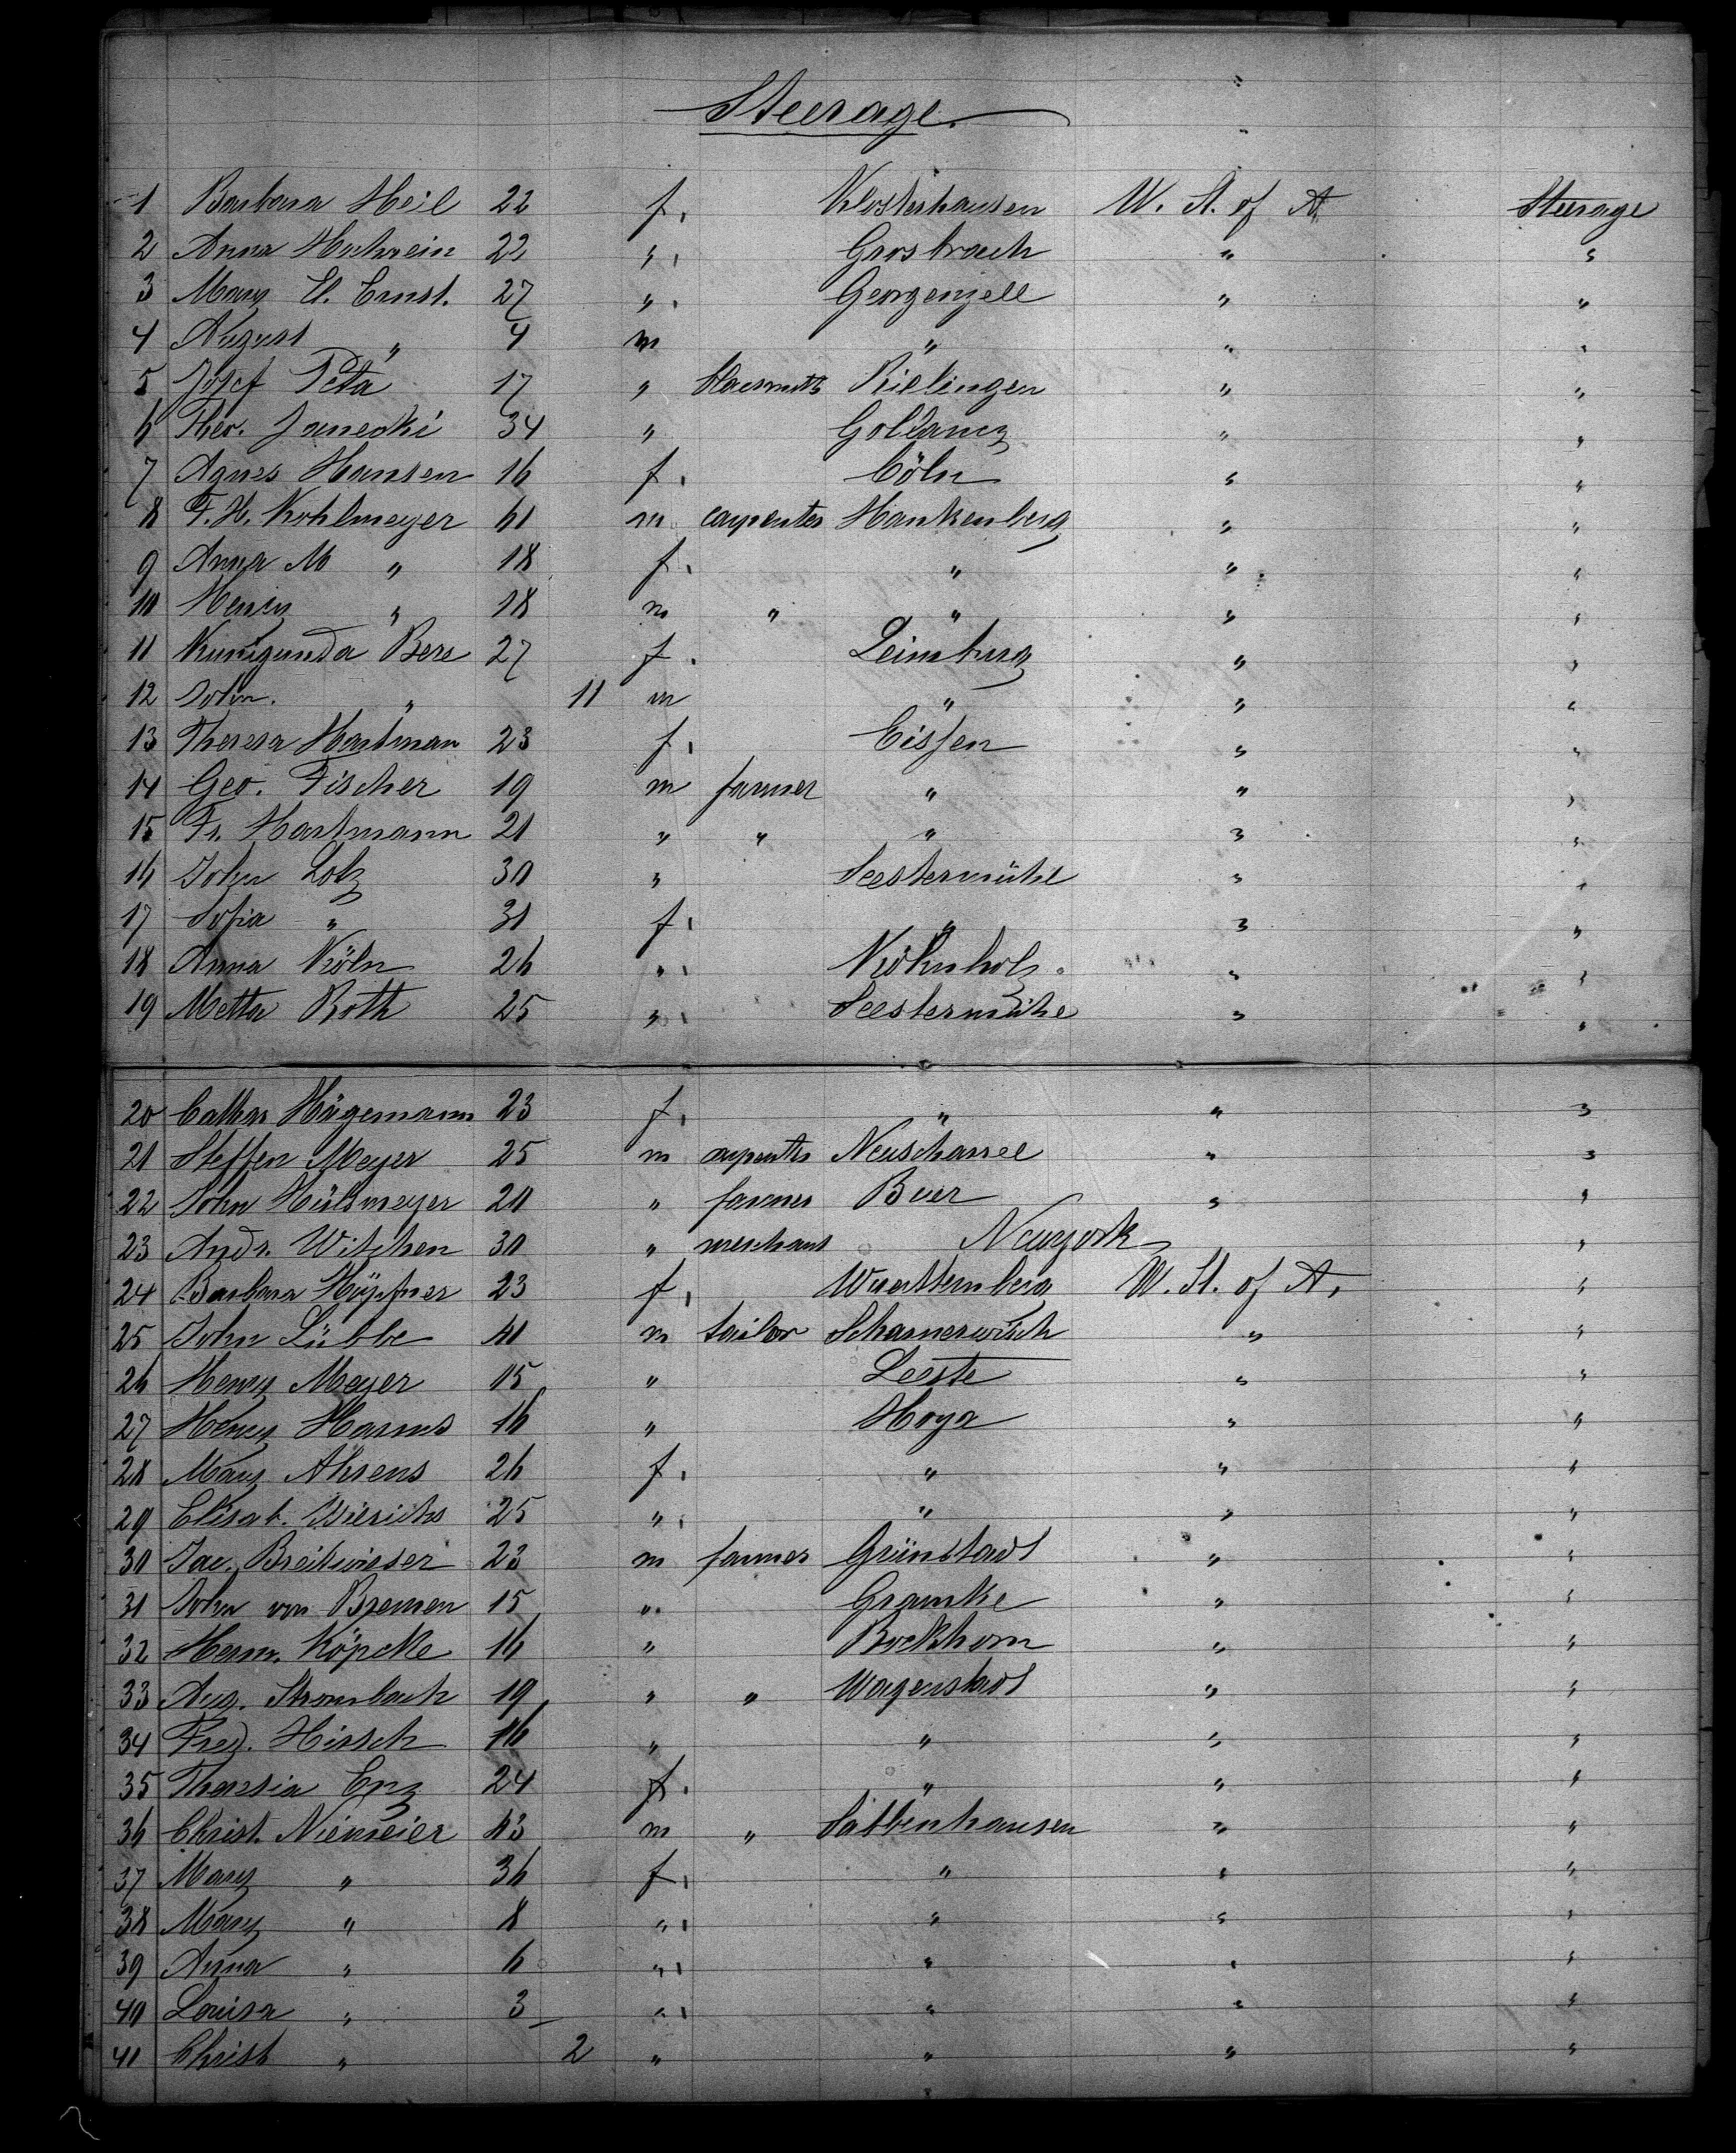 Steerage.
1 Barbara Heil 22 f. Klosterhausen U. St. of A. Steerage
2 Anna Hochrein 22 " Grosbrach " "
3 Mary E. Ernst. 27 " Georgenzell " "
4 August " 4 m " " "
5 Josef Peta 17 " Rielingen " "
6 Theo. Janecki 34 " Gollancz " "
7 Agnes Hansen 16 f. Cöln " "
8 F. H. Kohlmeyer 61 m carpenter Hankenberg " "
9 Anna M " 18 f. " " "
10 Henry " 18 m " " " "
11 Kunigunda Bere 27 f. Leimburg " "
12 John. " 11 m " " "
13 Theresa Hartman 23 f. Eissen " "
14 Geo. Fischer 19 m farmer " " "
15 Fr. Hartmann 21 " " " " "
16 John Lotz 30 " Seestermühe " "
17 Sofia " 31 f. " " "
18 Anna Köln 26 " Köhnholz. " "
19 Metta Roth 25 " Seestermühe " "
20 Cathar. Hägemann 23 f. " " "
21 Steffen Meyer 25 m carpenter Neuscharrel " "
22 John Hülsmeyer 20 " farmer Buer " "
23 Andr. Witzhen 30 " merchant Newyork "
24 Barbara Höpfner 23 f. Wuerttemberg U. St. of A. "
25 John Lübbe 41 m tailor " "
26 Henry Meyer 15 " Leeste " "
27 Henry Harms 16 " Hoya " "
28 Mary Ahrens 26 f. " " "
29 Elisab. Wierichs 25 " " " "
30 Jac. Breitwieser 23 m farmer Grünstadt " "
31 John von Bremen 15 " Gramke " "
32 Herm. Köpcke 16 " Bockhorn " "
33 Aug. Strombach 19 " " Wagenstadt " "
34 Fred. Hirsch 16 " " " "
35 Theresia Enz 24 f. " " "
36 Christ. Niemeier 43 m " Sabbenhausen " "
37 Mary " 36 f. " " "
38 Mary " 8 " " " "
39 Anna " 6 " " " "
40 Louisa " 3 " " " "
41 Christ " 2 " " " "